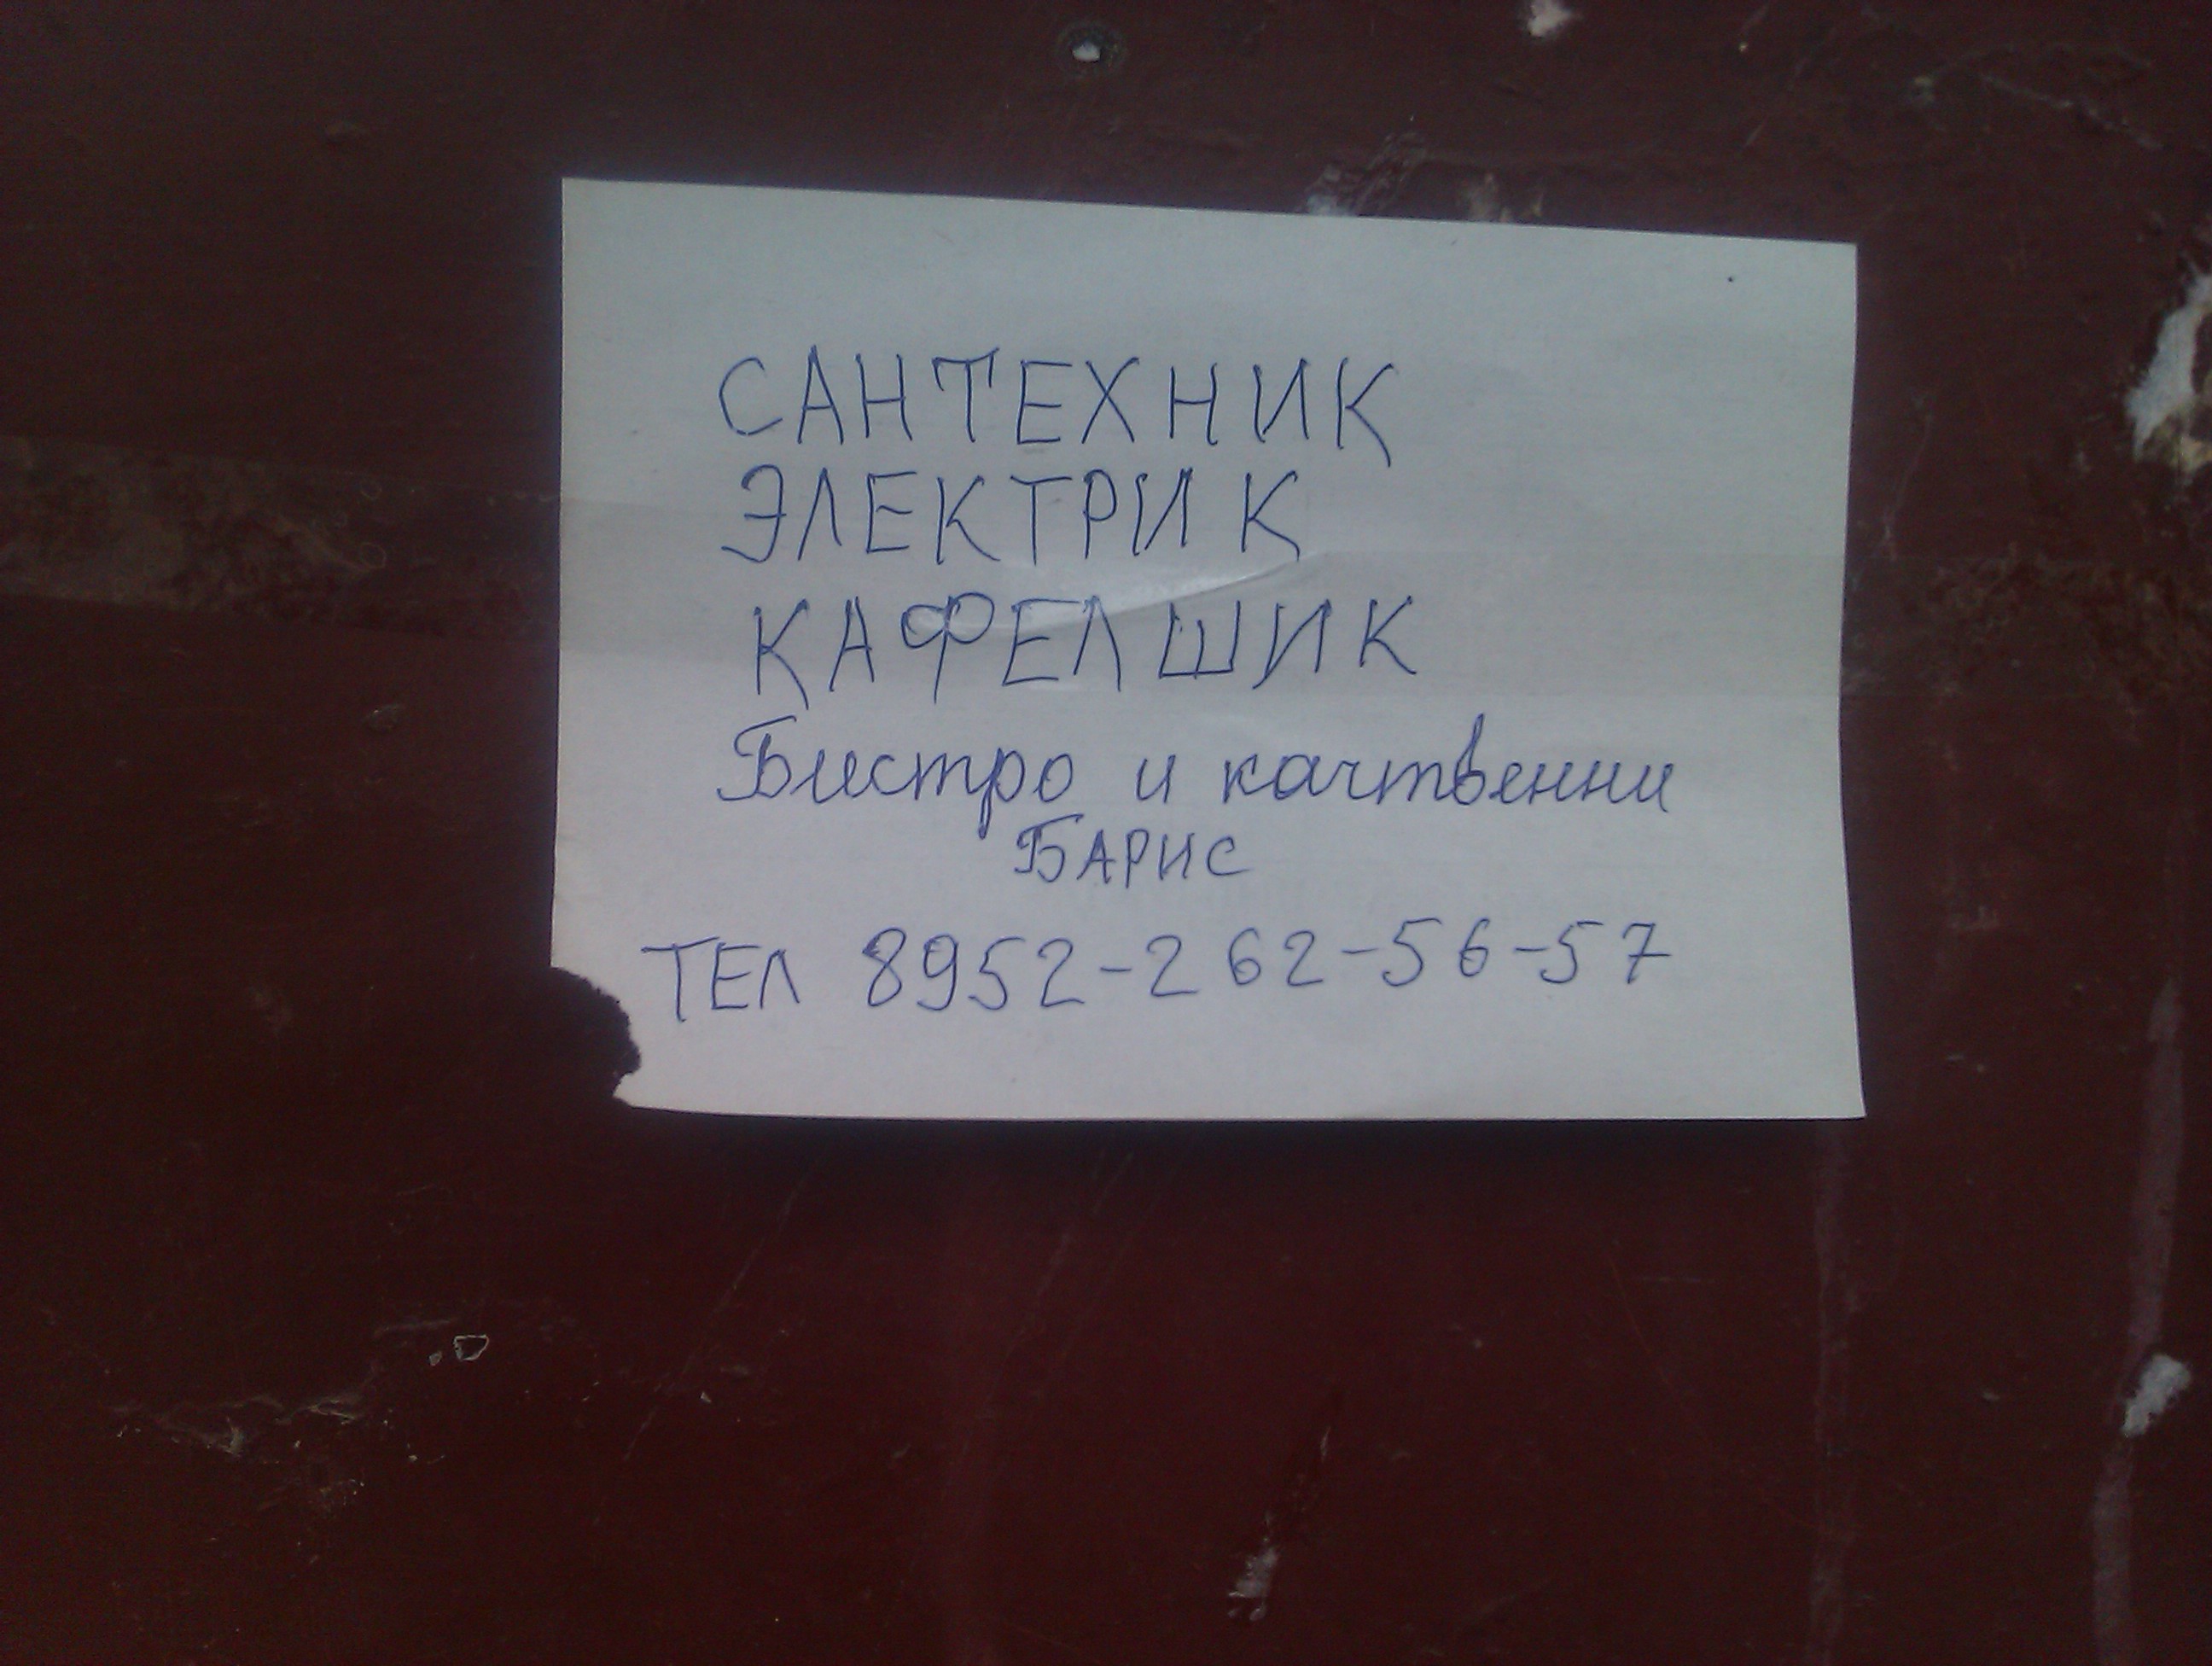 САНТЕХНИК
ЭЛЕКТРИК
КАФЕЛШИК
Бистро и качтвенни
БАРИС
ТЕЛ 8952-262-56-57